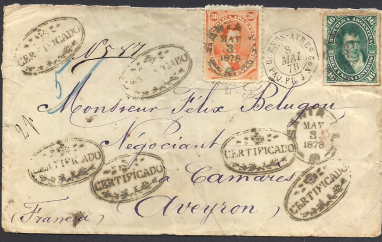 CERTIFICADO
MAY
3
1878
BUENOS-AYRES
8
MAI
78
16
16
CERTIFICADO
Monsieur Félix Belugou
Négociant
MAY
3
1878
CERTIFICADO
CERTIFICADO
CERTIFICADO
à Camarès
CERTIFICADO
(France)
Aveyron